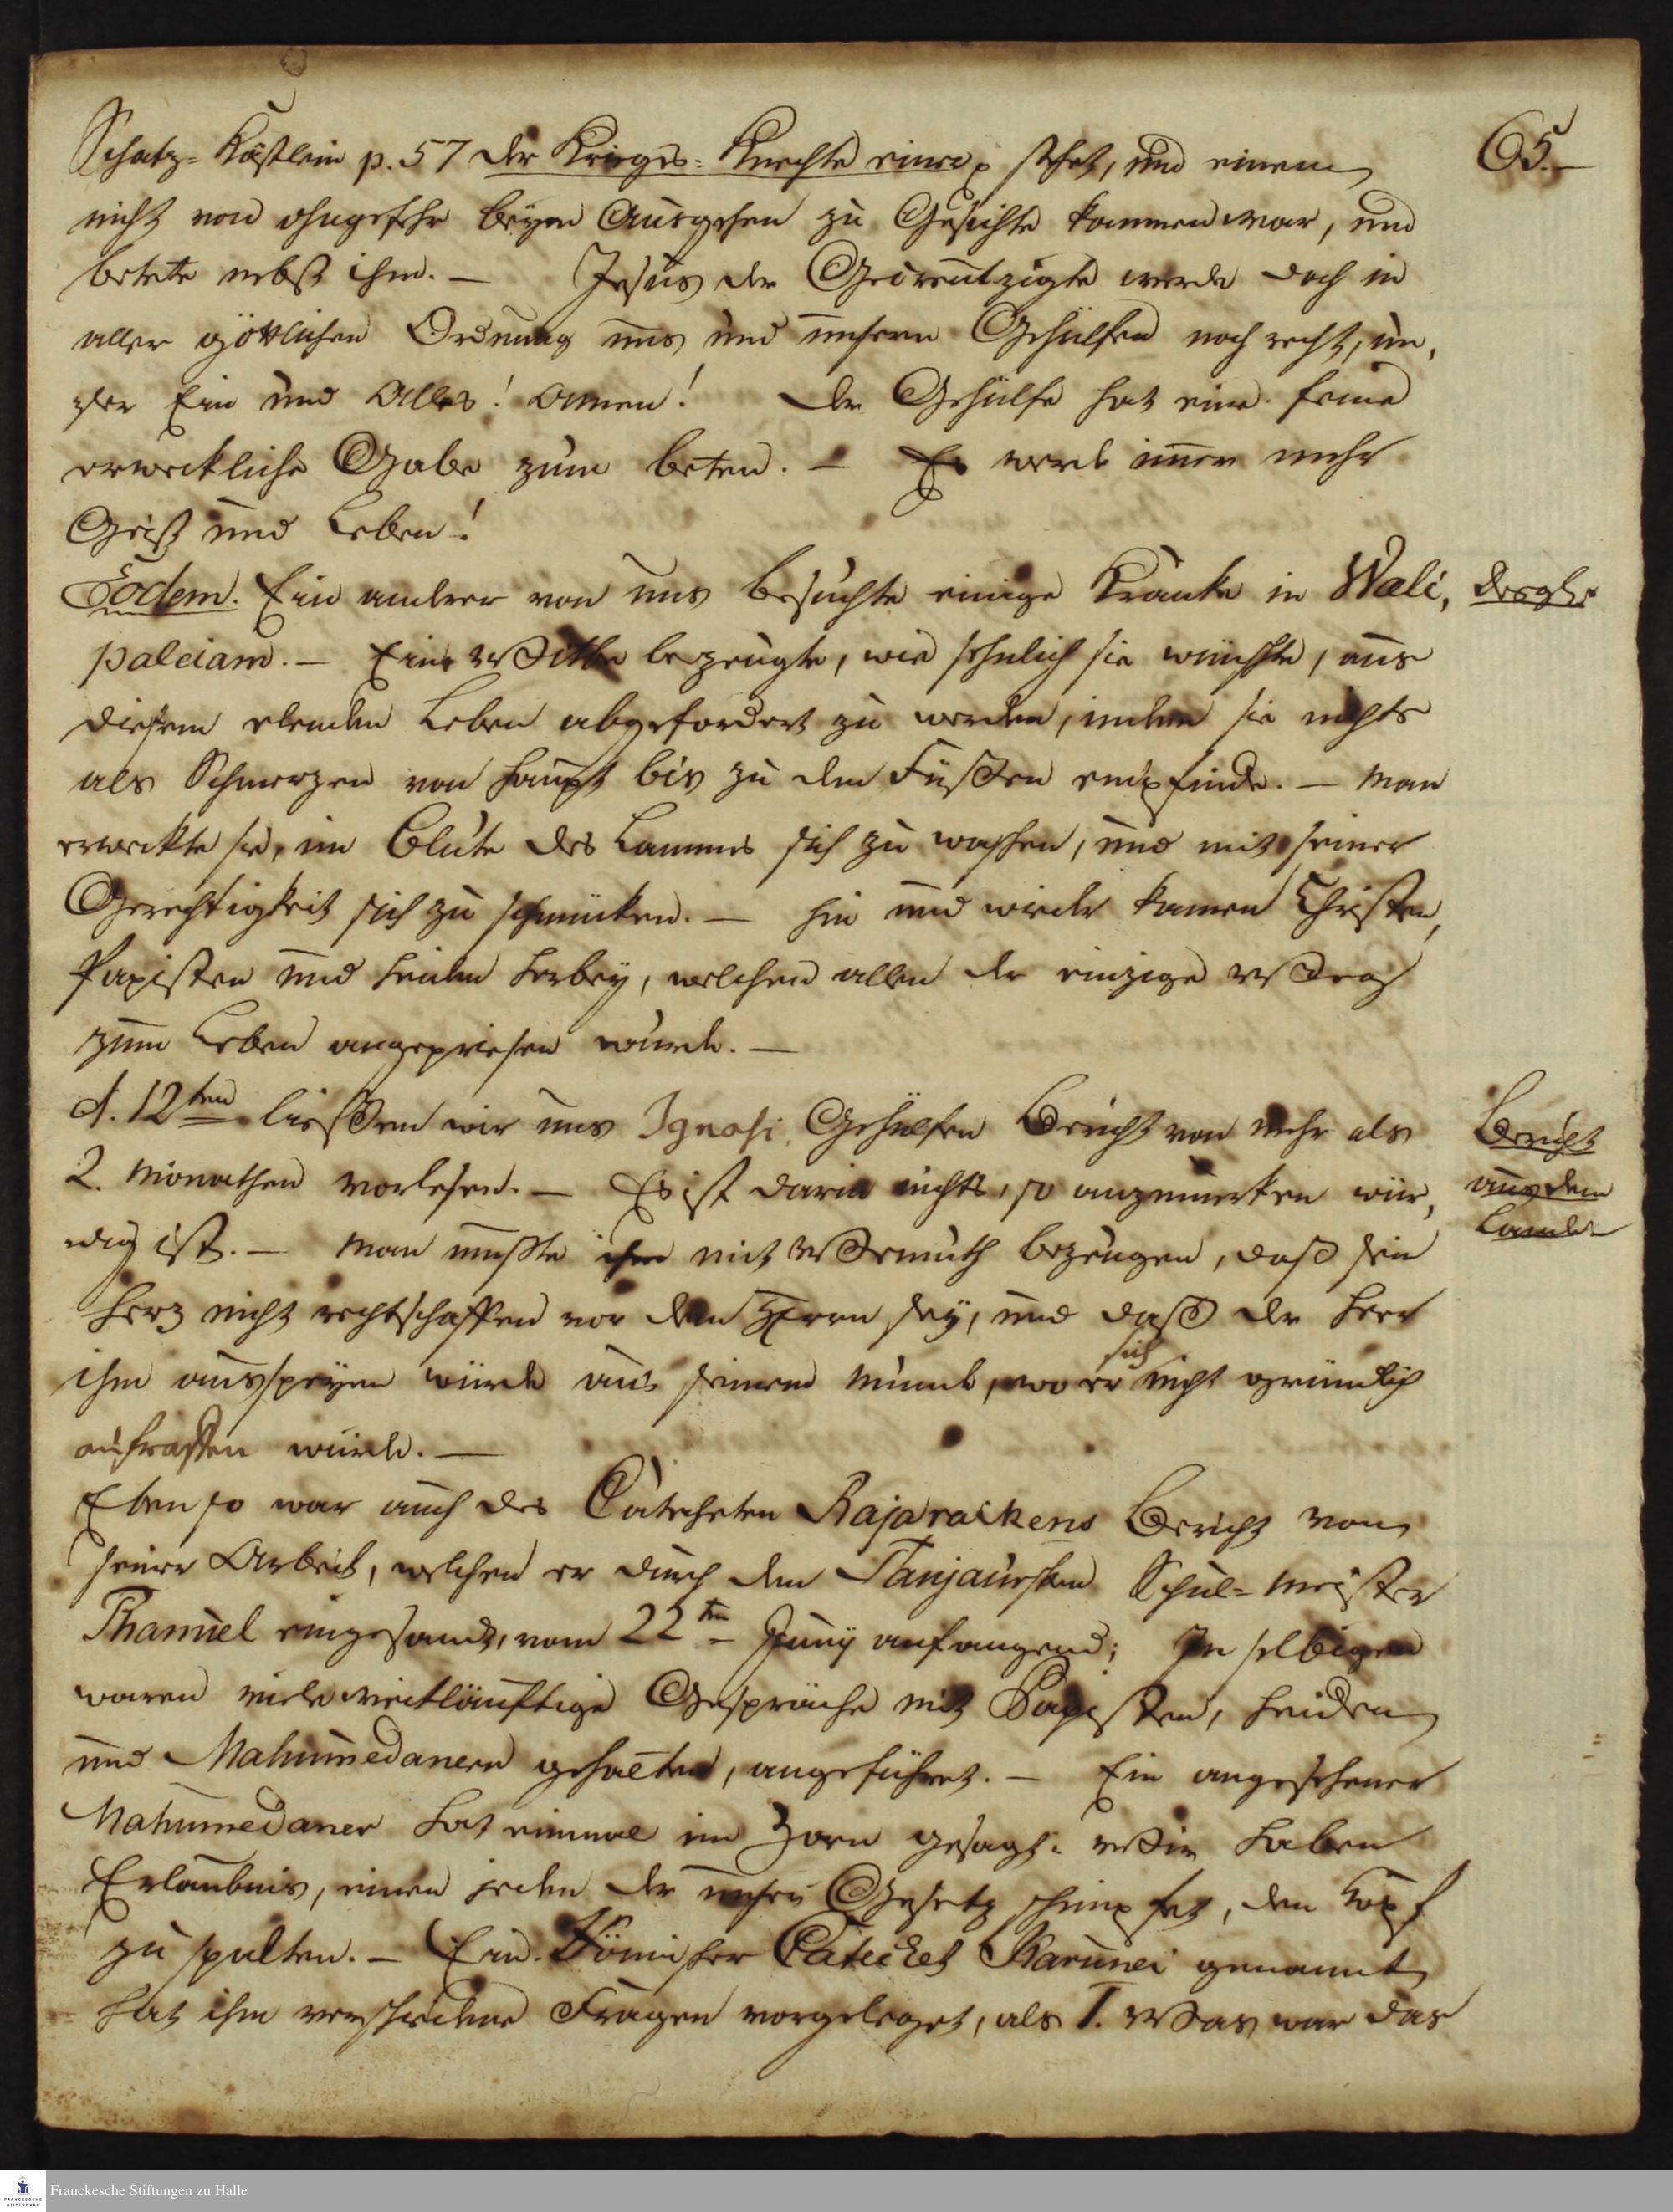 65.
Schatz-Kästlein p. 57 der Krieges-Knechte einer stehet, und einem
nicht von ohngefehr beym Ausgehen zu Gesichte kommen war, und
betete nebst ihm. — Jesus der Gecreutzigte werde doch in
aller göttlichen Ordnung uns und unsern Gehülfen noch recht, un,
ser Ein und Alles! Amen! Der Gehülfe hat eine feine
erweckliche Gabe zum beten. — Es werde immer mehr
Geist und Leben!
Eodem. Ein anderer von uns besuchte einige Krancke in Weli,
desgl.
paleiam. — Eine Wittbe bezeugte, wie sehnlich sie wünschte, aus
diesem elenden Leben abgefordert zu werden, indem sie nichts
als Schmerzen von Haupt bis zu den Füßen empfinde. — Man
erweckte sie, im Blute des Lammes sich zu waschen, und mit seiner
Gerechtigkeit sich zu schmücken. — Hin und wieder kamen Christen,
Papisten und Heiden herbey, welchen allen der einzige Weg
zum Leben angepriesen wurde. —
d. 12ten ließen wir uns Ignasi, Gehülfen Bericht von mehr als
Bericht
2. Monathen vorlesen. — Es ist darin nichts, so anzumerken wür,
aus dem
dig ist. — Man mußte ihm mit Wemuth bezeugen, daß sein
Lande
Herz nicht rechtschaffen vor dem Herrn sey, und daß der Herr
ihn ausspeyen würde aus seinem Munde, wo er sich nicht gründlich
aufraffen würde. —
Eben so war auch des Catecheten Rajanaickens Bericht von
seiner Arbeit, welchen er durch den Tanjaurschen Schul-Meister
Thamuel eingesandt, vom 22ten Juny anfangend; In selbigen
waren viele weitläuftige Gespräche mit Papisten, Heiden
und Mahumedanern gehalten, angeführet. — Ein angesehener
Mahumedaner hat einmal im Zorn gesagt: Wir haben
Erlaubnis, einen jeden der unser Gesetz schimpfet, den Kopf
zu spalten. — Ein Römischer Catechet Karunei genannt
hat ihm verschiedene Fragen vorgeleget, als 1. Was war das
Franckesche Stiftungen zu Halle